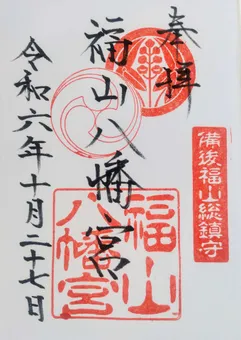 奉拝
備後福山総鎮守
福山八幡宮
福山
八幡宮
令和六年十月二十七日